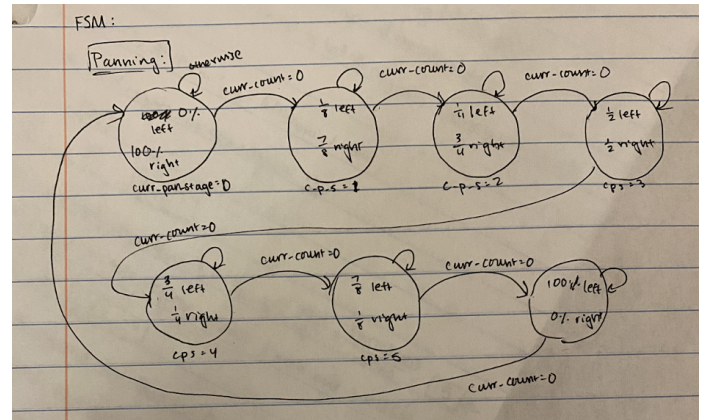 FSM:
Panning:
otherwise
curr-count=0
curr-count=0
curr-count=0
0%
left
100%
right
curr-pan-stage=0
1/8 left
7/8 right
c-p-s=1
1/4 left
3/4 right
c-p-s=2
1/2 left
1/2 right
cps=3
curr-count=0
curr-count=0
curr-count=0
3/4 left
1/4 right
cps=4
7/8 left
1/8 right
cps=5
100% left
0% right
curr-count=0